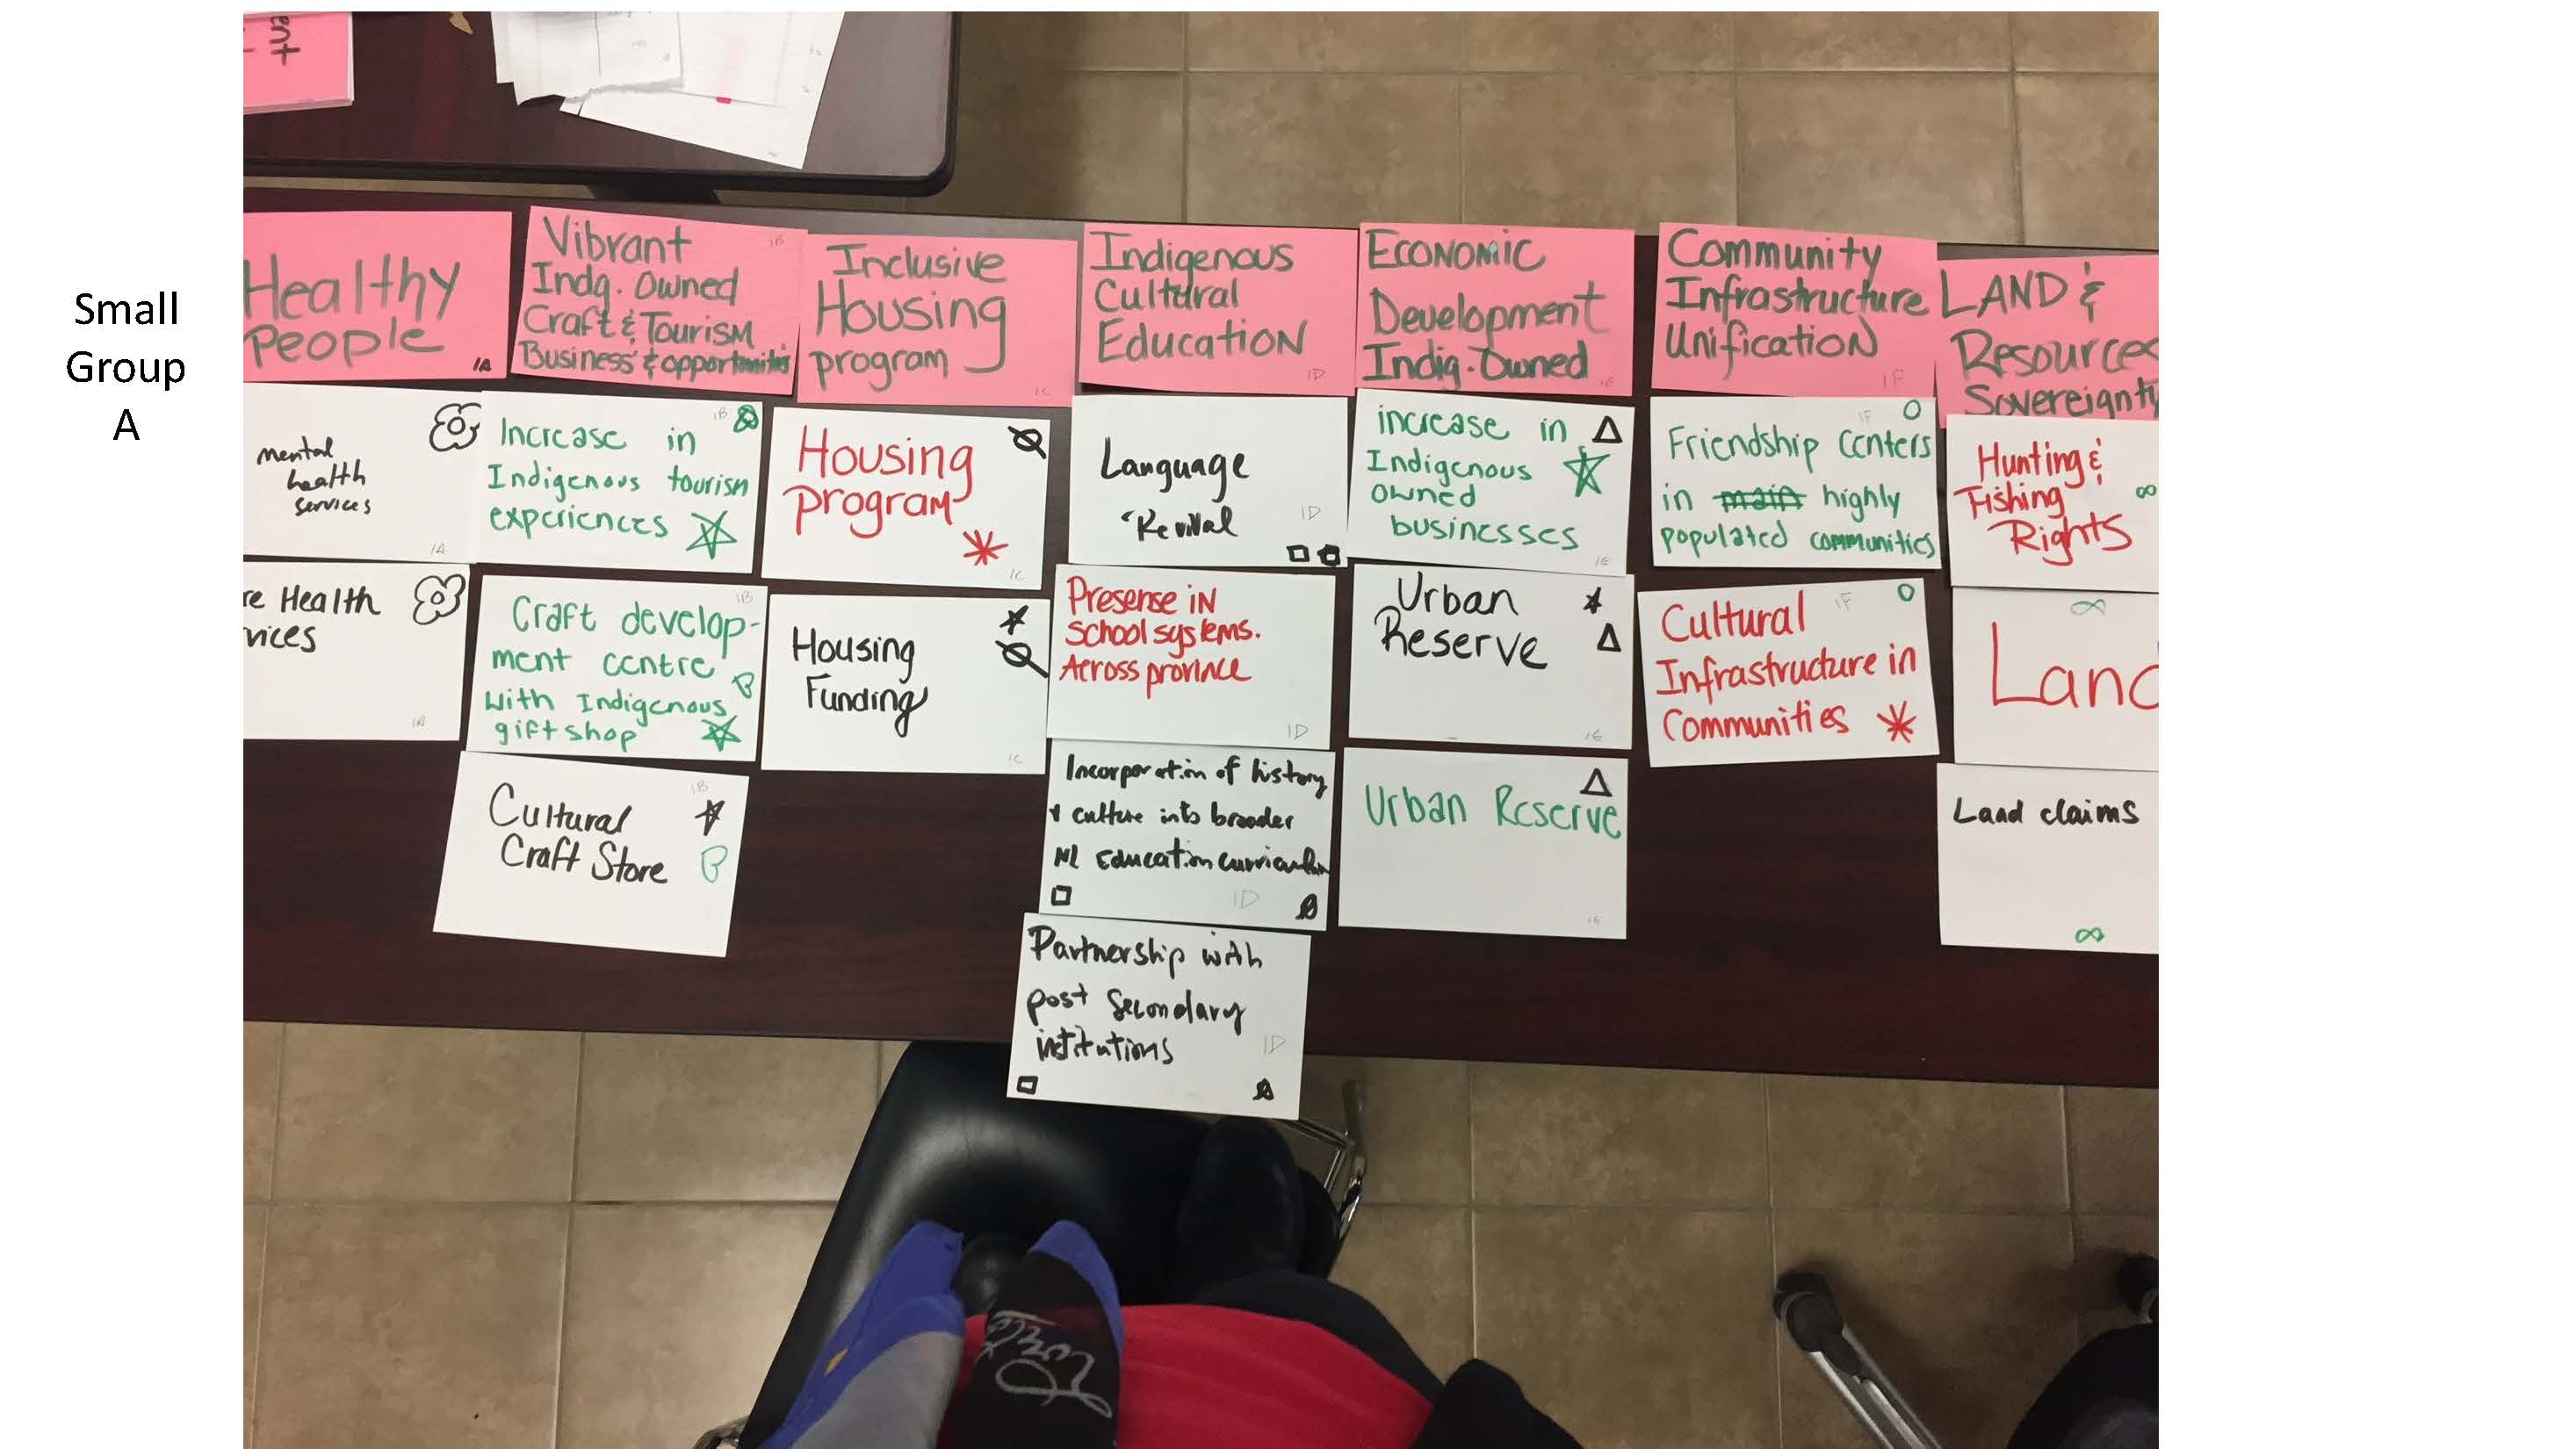 Small
Group
A
Healthy
People
1A
mental
health
services
1A
re Health
vices
1A
Vibrant
1B
Indg. Owned
Craft & Tourism
Business & opportunities
Increase in
1B
Indigenous tourism
experiences
Craft develop-
1B
ment centre
with Indigenous
gift shop
Cultural
1B
Craft Store
Inclusive
Housing
program
1C
Housing
program
1C
Housing
Funding
1C
Indigenous
Cultural
Education
1D
Language
Revival
1D
Presense in
School systems.
Across province
1D
Incorporation of history
& culture into broader
NL Education curriculum
1D
Partnership with
post Secondary
institutions
1D
Economic
Development
Indig. Owned
1E
increase in
Indigenous
owned
businesses
1E
Urban
Reserve
1E
Urban Reserve
1E
Community
Infrastructure
Unification
1F
1F
Friendship Centers
in main highly
populated communities
Cultural
1F
Infrastructure in
Communities
LAND &
Resources
Sovereignty
Hunting &
Fishing
Rights
Land
Land claims